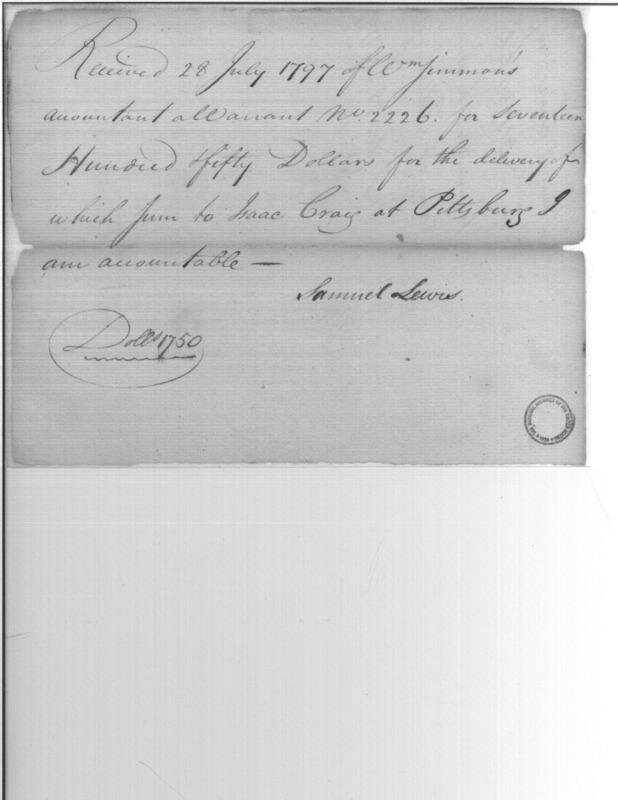 Received 28 July 1797 of Wm Simmons
accountant a Warrant No. 2226. for Seventeen
Hundred & fifty Dollars for the delivery of
which Sum to Isaac Craig at Pittsburg I
am accountable —
Samuel Lewis.
Dolls 1750